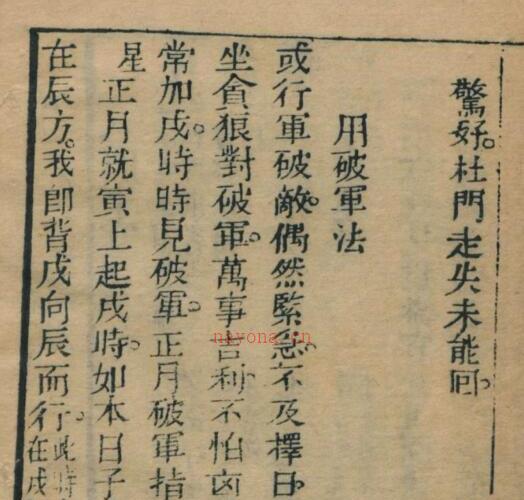 驚好。杜門走失未能囘。
用破軍法
或行軍破敵。偶然緊急。不及擇日。
坐貪狼對破軍。萬事吉利。不怕凶
常加戌。時時見破軍。正月破軍指
星正月就寅上起戌時。如本日子
在辰方。我卽背戌向辰而行。此時
在戌
nayona.cn